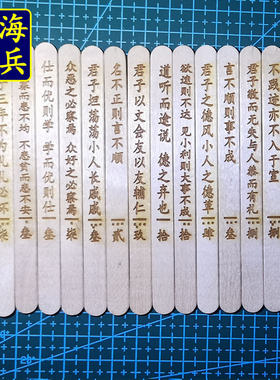 海兵
患不均 不患贫而患不安 叁
仕而优则学 学而优则仕 叁
众恶之必察焉 众好之必察焉 叁
君子坦荡荡小人长戚戚 叁
名不正则言不顺 贰
君子以文会友以友辅仁 玖
道听而途说 德之弃也 拾
欲速则不达 见小利则大事不成 拾
君子之德风小人之德草 肆
言不顺则事不成 叁
君子敬而无失与人恭而有礼 捌
不践迹亦不入于室 捌